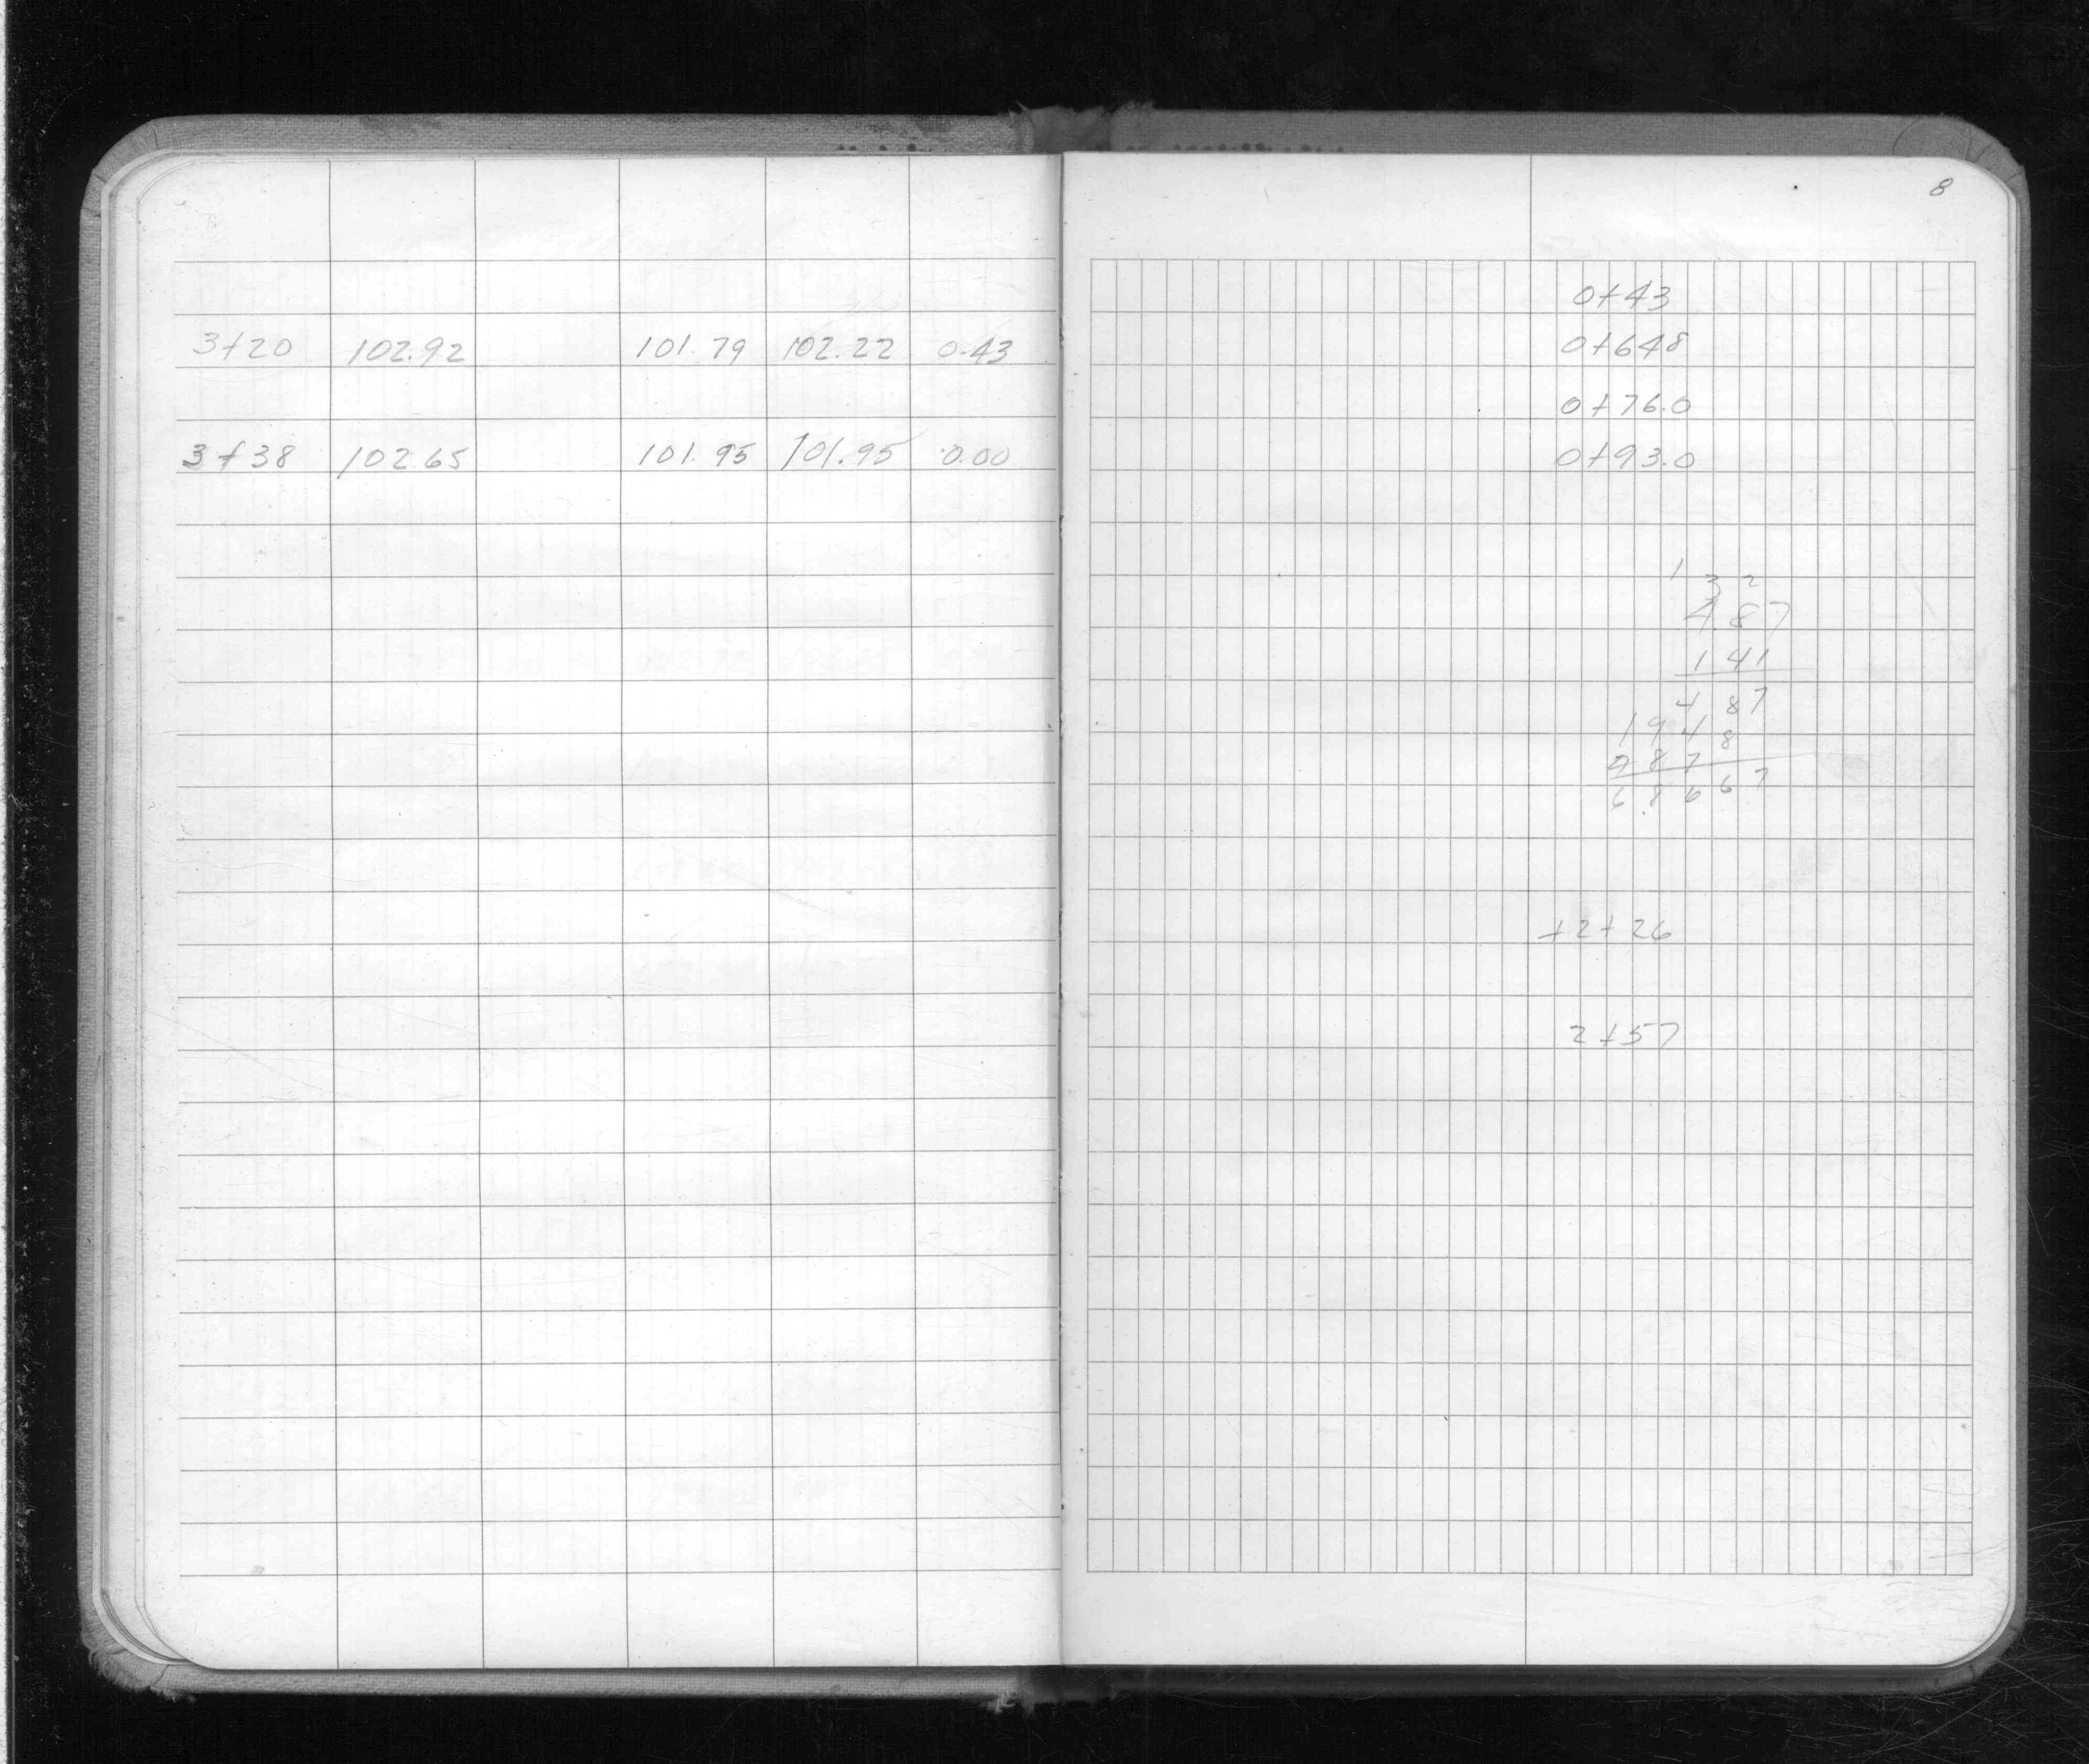 3+20 102.92 101.79 102.22 0.43
3+38 102.65 101.95 101.95 0.00
8
0+43
0+648
0+76.0
0+93.0
1
3 2
4.87
1 41
4 87
1 9 4 8
4 8 7
6 8 6 6 7
+2+26
2+57